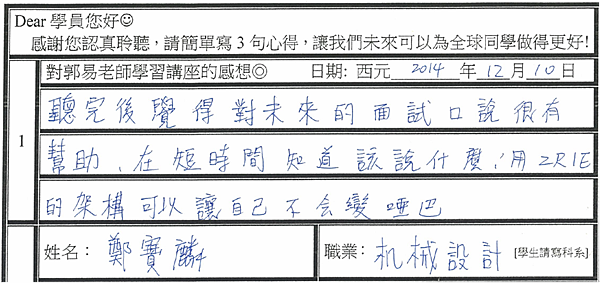 Dear 學員您好☺
感謝您認真聆聽，請簡單寫 3 句心得，讓我們未來可以為全球同學做得更好!
1 對郭易老師學習講座的感想◎ 日期: 西元 2014 年 12 月 10 日
聽完後覺得對未來的面試口說很有
幫助、在短時間知道該說什麼，用 2R1E
的架構可以讓自己不会變啞巴
姓名： 鄭寶麟 職業： 机械設計 [學生請寫科系]